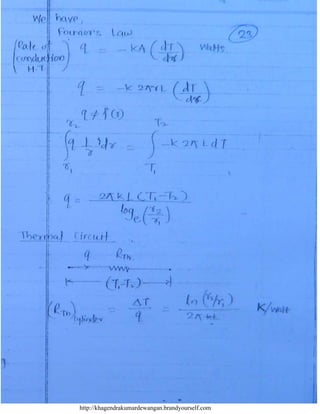 We have,
Fourier's Law
(23)
(Rate of conduction H.T) q = -kA (dT/dr) Watts
q = -k 2πrL (dT/dr)
q ≠ f(r)
∫_{r₁}^{r₂} q 1/r dr = ∫_{T₁}^{T₂} -k 2πL dT
q = 2πkL (T₁-T₂) / log_e (r₂/r₁)
Thermal Circuit
q R_Th
(T₁-T₂)
(R_Th)cylinder = ΔT/q = ln (r₂/r₁) / 2πkL K/watt
http://khagendrakumardewangan.brandyourself.com